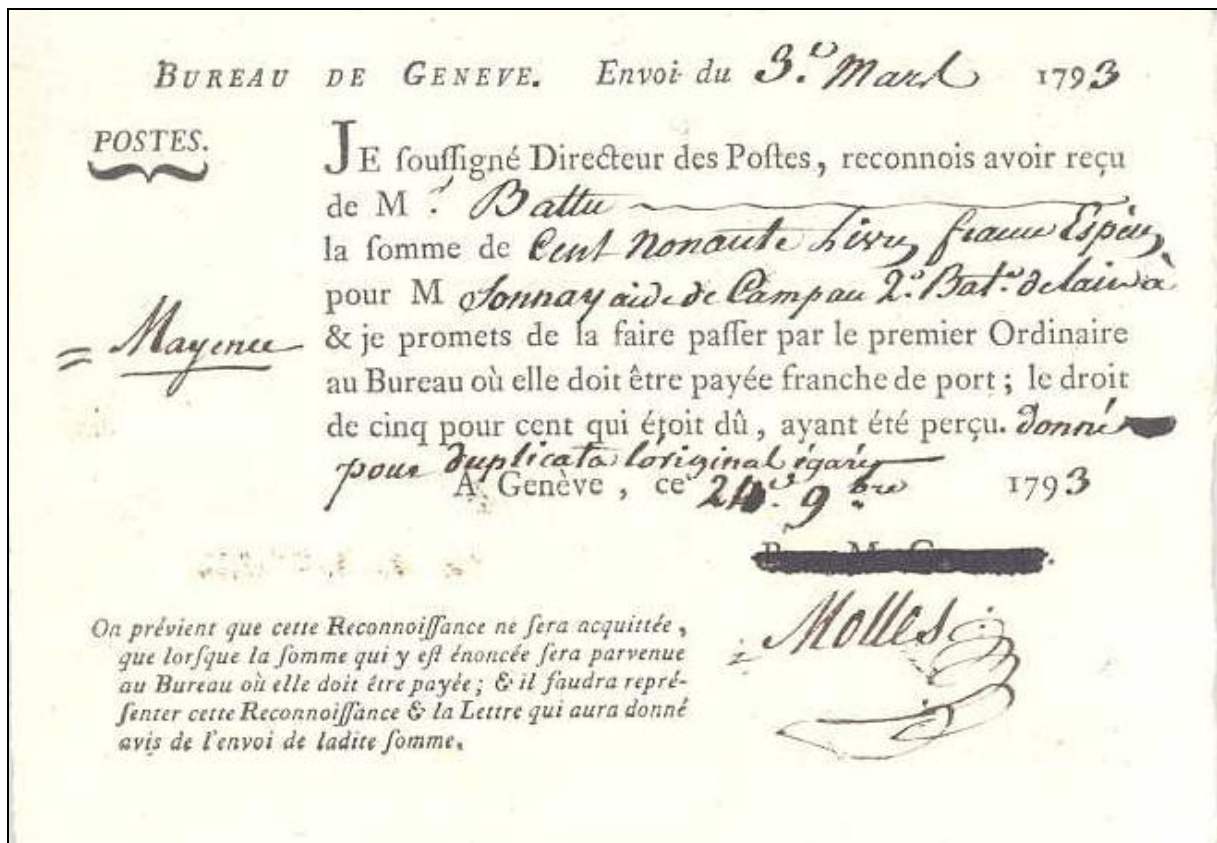 BUREAU DE GENEVE. Envoi du 3.e Mars 1793
POSTES.
JE souſſigné Directeur des Poſtes, reconnois avoir reçu
de M.r Battu
la ſomme de Cent Nonante Livres france Espèces
pour M Sonnay aide de Camp au 2.e Bat.on de lain à
= Mayence
& je promets de la faire paſſer par le premier Ordinaire
au Bureau où elle doit être payée franche de port ; le droit
de cinq pour cent qui étoit dû, ayant été perçu. donné
pour duplicata l'original égaré
A Genève, ce 24.e 9.bre 1793
Molles
On prévient que cette Reconnoiſſance ne ſera acquittée,
que lorſque la ſomme qui y eſt énoncée ſera parvenue
au Bureau où elle doit être payée ; & il faudra repré-
ſenter cette Reconnoiſſance & la Lettre qui aura donné
avis de l'envoi de ladite ſomme.